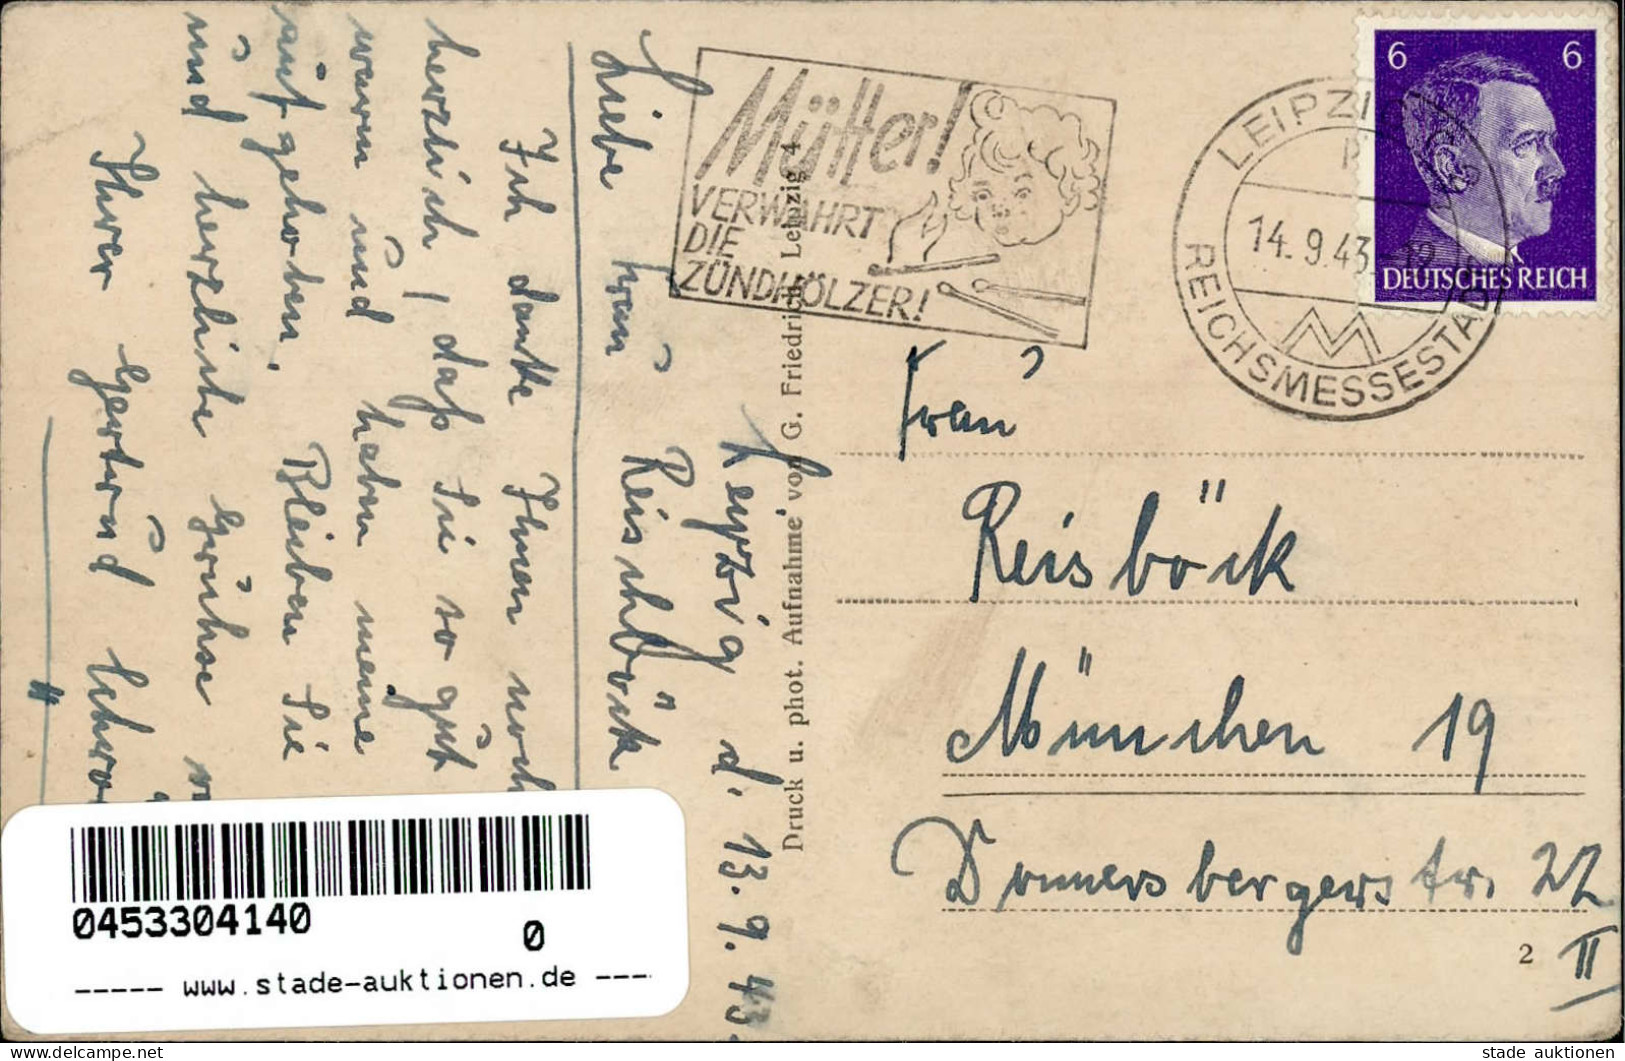 Leipzig d. 13.9.43.
Liebe Frau Reischböck
Ich danke Ihnen noch
herzlich, daß Sie so gut
waren und haben meine
aufgehoben. Bleiben Sie
und herzliche Grüße v
Ihrer Gertrud
Mütter!
VERWAHRT
DIE
ZÜNDHÖLZER!
LEIPZIG
14.9.43. 12
REICHSMESSESTADT
6 6
DEUTSCHES REICH
Druck u. phot. Aufnahme von G. Friedrich, Leipzig 4
Frau
Reisböck
München 19
Donnersbergerstr. 22
II
2
0453304140
0
----- www.stade-auktionen.de ----
stade auktionen